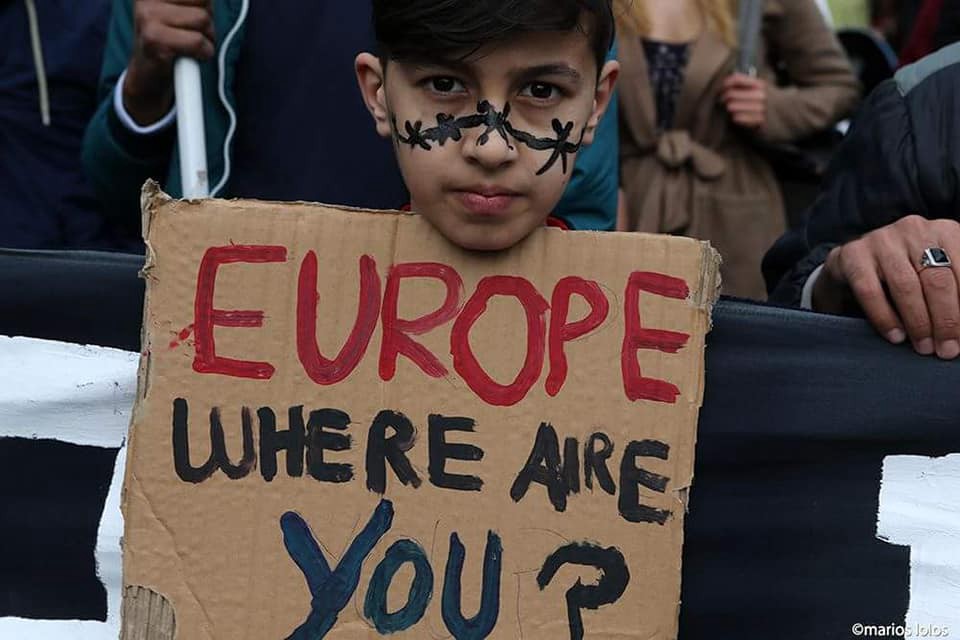 EUROPE
WHERE AIRE
YOU?
©marios lolos